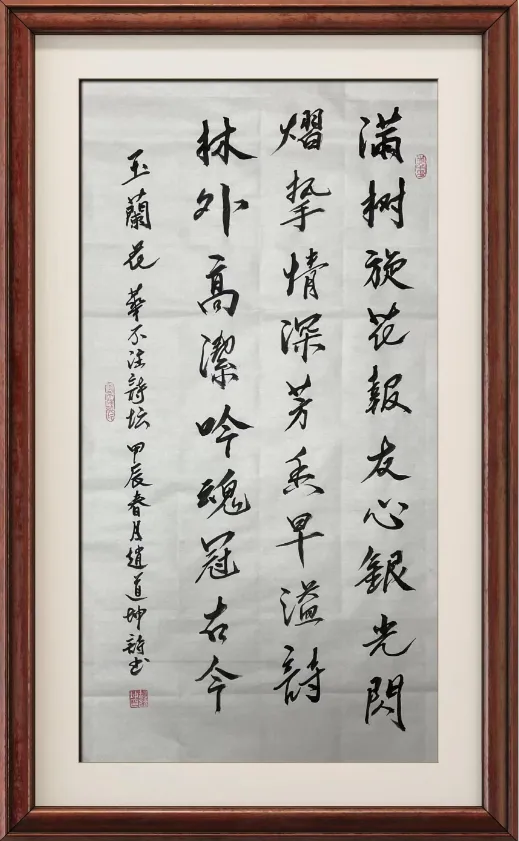 满树旋花報友心銀光閃
熠挚情深芳香早溢詩
林外高潔吟魂冠古今
玉蘭花 華不注詩坛 甲辰春月趙道坤詩书